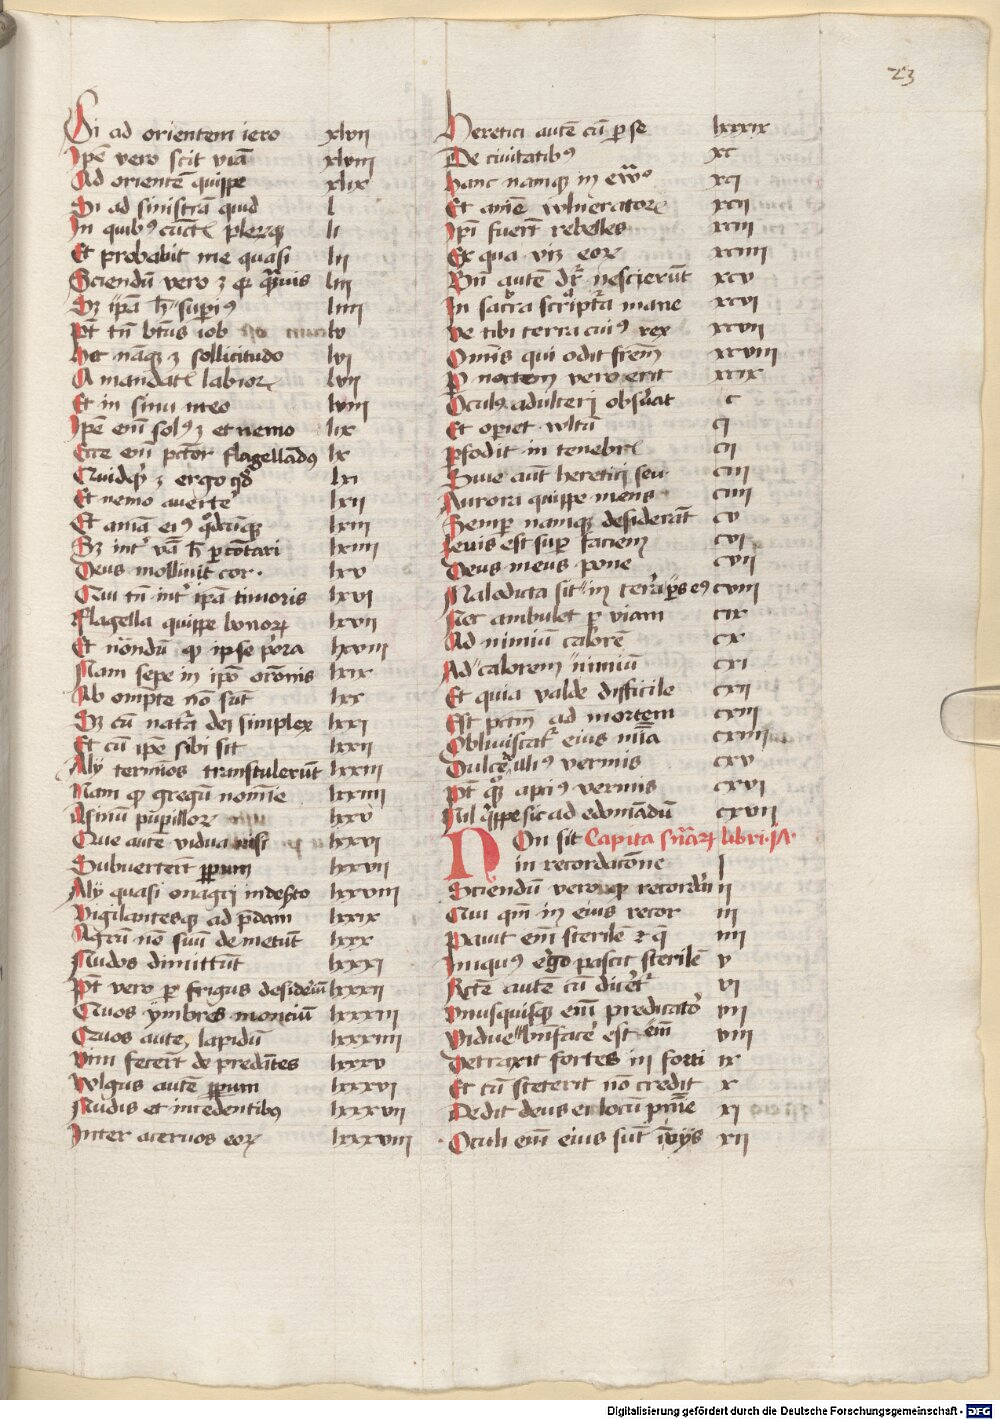 23
Si ad orientem iero xlvii
Ip̄e vero scit viā xlviii
Ad orientē quippe xlix
Si ad sinistrā quid l
In quibꝰ cūctꝭ plerꝫqꝫ li
Et probabit me quasi lii
Sciendū vero ꝫ qꝫ qͣꝫuis liii
Sꝫ ip̄a h̄ supiꝰ liiii
Pt tn̄ btūs iob lv
Hec nāqꝫ ꝫ sollicitudo lvi
A mandatꝭ labioꝝ lvii
Et in sinu meo lviii
Ip̄e em̄ solꝰ ꝫ et nemo lix
Ecce em̄ pctōr flagellādꝰ lx
Quidqͥd ꝫ ergo qd̄ lxi
Et nemo auertē lxii
Et aniā eiꝰ qd̄cūqꝫ lxiii
Sꝫ intͥ vā h̄ pcōtari lxiiii
Deus molliuit cor · lxv
Qui tn̄ intͥ ip̄a timoris lxvi
Flagella quippe bonoꝝ lxvii
Et nōndū qꝫ ipse pōra lxviii
Nam sepe in ip̄o orōnis lxix
Ab omp̄te nō sūt lxx
Sꝫ cū natͣa dei simplex lxxi
Et cū ip̄e sibi sit lxxii
Alij termīos transtulerūt lxxiii
Nam qꝫ gregū nomīe lxxiiii
Asinū pupilloꝝ lxxv
Que autē vidua nisi lxxvi
Subuerterūt pꝑum lxxvii
Alij quasi onagri in deſto lxxviii
Vigilantesqꝫ ad p̄dam lxxix
Agrū nō suū demetūt lxxx
Nudos dimittūt lxxxi
Pt vero per frigus desideriū lxxxii
Quos ymbres montiū lxxxiii
Quos aute lapidū lxxxiiii
Vim fecerūt depredātes lxxxv
Vulgus autē pꝑum lxxxvi
Nudis et incedentibꝰ lxxxvii
Inter aceruos eoꝝ lxxxviii
Heretici autē cū per se lxxxix
De ciuitatibꝰ xc
Hanc namqꝫ in xci
Et aniē vulneratoꝝ xcii
Ipi fuerūt rebelles xciii
Ex qua viꝫ eoꝝ xciiii
Bn̄ autē dr̄ nescierūt xcv
In sacͣra scriptͣa mane xcvi
Ve tibi terra cuiꝰ rex xcvii
Omīs qui odit frēm xcviii
Per noctem vero erit xcix
Oculꝰ adulteri obsʼuat c
Et operiet vultū ci
Perfodit in tenebrꝭ cii
Siue aūt heretici seu ciii
Aurora quippe mens ciiii
Semper namqꝫ desiderāt cv
Leuis est super faciem cvi
Deus meus pone cvii
Maledicta sit in terra ps eꝰ cviii
Nec ambulet per viam cix
Ad nimiū calorē cx
Ad calorem nimiū cxi
Et quia valde difficile cxii
Est pctm̄ ad mortem cxiii
Obliuiscatʳ eius mīa cxiiii
Dulcedo illiꝰ vermis cxv
Pt qͣꝫ apiꝰ vermis cxvi
Nil qͥppe sic ad edomādū cxvii
Non sit Capita sn̄iaꝝ libri
in recordatiōne i
Sciendū vero qꝫ recordari ii
Cui qm̄ in eius recor iii
Pauit em̄ sterilē ꝛ q̄ iiii
Iniquꝰ ergo pascit sterilē v
Recte autē cū dicerēt vi
Vnusquisqꝫ em̄ predicator vii
Vidue bn̄facere est em̄ viii
Detraxit fortes in forti ix
Et cū steterit nō credit x
Dedit deus ei locū pn̄ie xi
Oculi em̄ eius sūt ī vijs xii
Digitalisierung gefördert durch die Deutsche Forschungsgemeinschaft - DFG